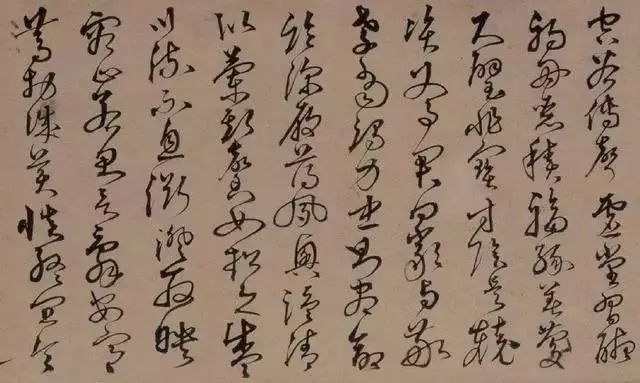 空谷傳聲虛堂習聽
禍因惡積福緣善慶
尺璧非寶寸陰是競
資父事君曰嚴與敬
孝當竭力忠則盡命
臨深履薄夙興溫清
似蘭斯馨如松之盛
川流不息淵澄取映
容止若思言辭安定
篤初誠美慎終宜令